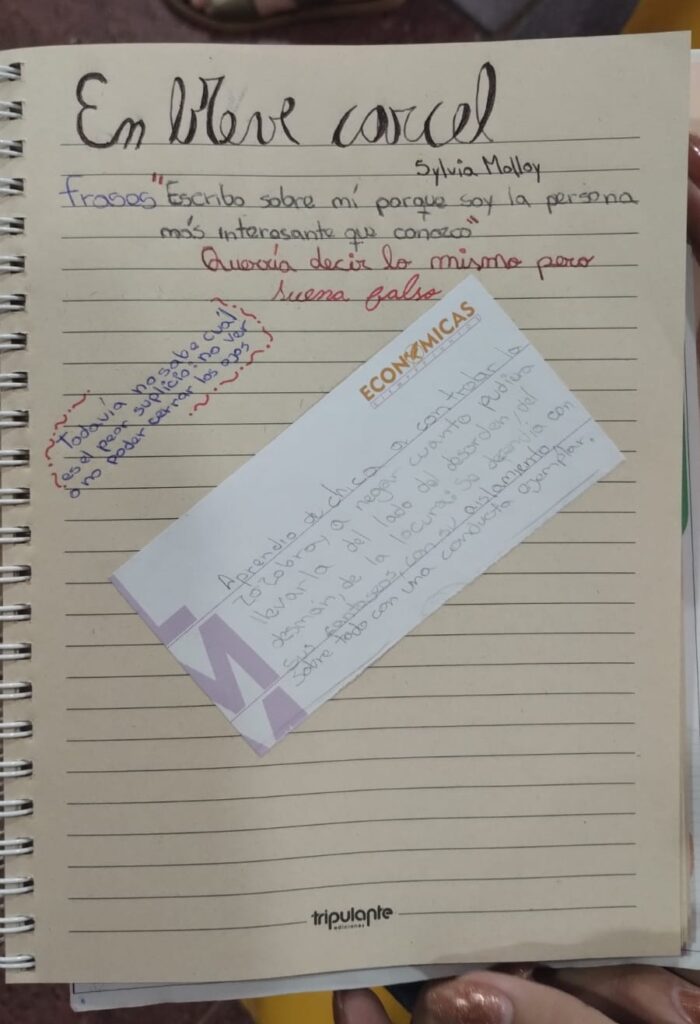 En breve carcel
Sylvia Molloy
frases "Escribo sobre mí porque soy la persona
más interesante que conozco"
Querría decir lo mismo pero
suena falso
Todavía no sabe cuál
es el peor suplicio: no ver
o no poder cerrar los ojos
ECONÓMICAS
Aprendió de chica a controlar la
zozobra y a negar cuanto pudiera
llevarla del lado del desorden, del
desmán, de la locura. Se defendía con
sus fantaseos, con su aislamiento
sobre todo con una conducta ejemplar.
tripulante
ediciones